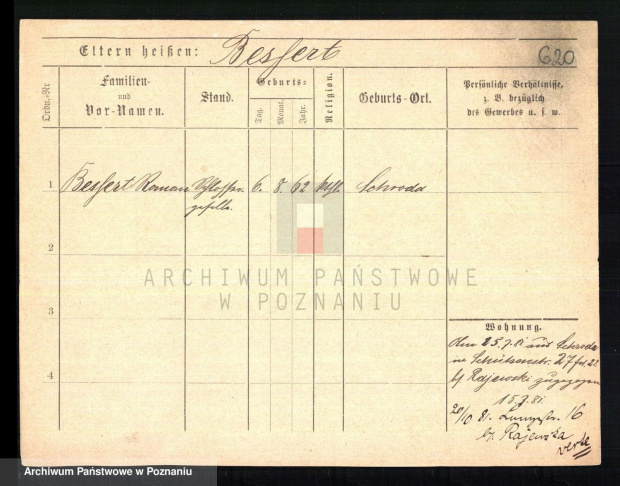 Eltern heißen: Besfert
620
Ordn.-Nr
Familien-
und
Vor-Namen.
Stand.
Geburts-
Tag.
Monat.
Jahr.
Religion.
Geburts-Ort.
Persönliche Verhältnisse,
z. B. bezüglich
des Gewerbes u. s. w.
1 Besfert Roman Schlosser- 6. 8. 62 kath. Schroda
geselle.
2
ARCHIWUM PAŃSTWOWE
W POZNANIU
3
4
Wohnung.
Am 25.7.81 aus Schroda
in Schützenstr. 27
bei Rajewski zugezogen
15.8.81.
20/10 81. 16
b. Rajewska
Archiwum Państwowe w Poznaniu